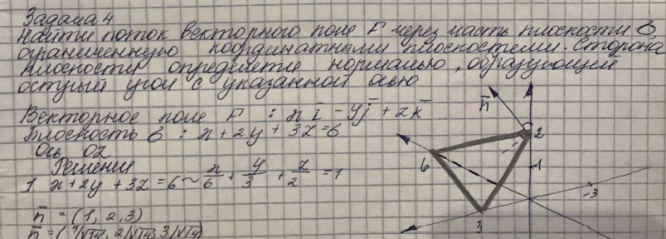 Задача 4
Найти поток векторного поле F через часть плоскости б,
ограниченную координатными плоскостеми. Сторона
плоскости определяется нормалью, образующей
острый угол с указанной осью
Векторное поле F : x i̅ - y j̅ + z k̅
Плоскость б : x + 2y + 3z = 6
Ось OZ
Решения
1 x + 2y + 3z = 6 ~ x/6 + y/3 + z/2 = 1
n̅ = (1, 2, 3)
n̅ = (1/√14, 2/√14, 3/√14)
n̅
2
6
1
-3
3